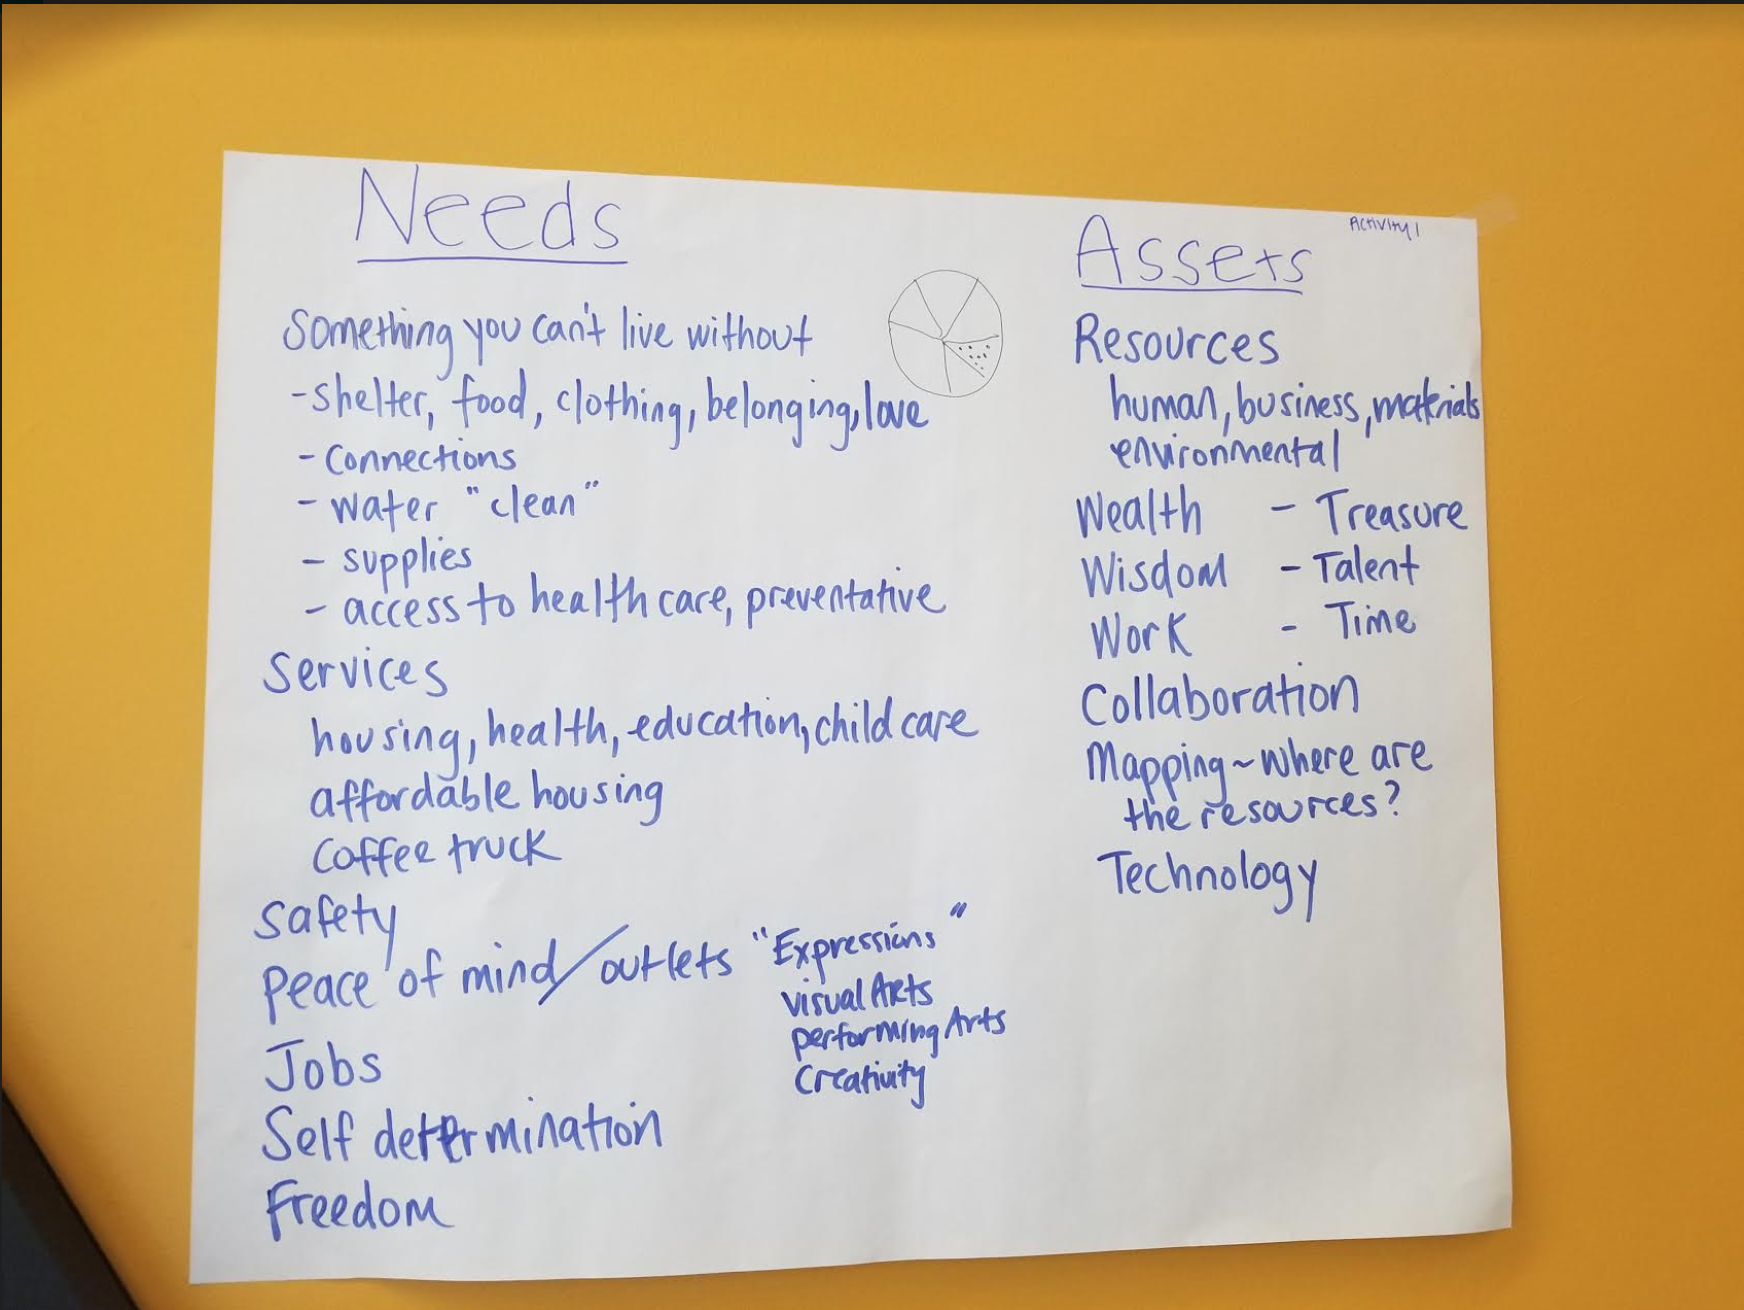 Needs
Something you can't live without
- shelter, food, clothing, belonging, love
- Connections
- water "clean"
- supplies
- access to health care, preventative
Services
housing, health, education, child care
affordable housing
Coffee truck
Safety
Peace of mind/outlets "Expressions"
Visual Arts
performing Arts
Creativity
Jobs
Self determination
Freedom
Activity 1
Assets
Resources
human, business, materials
environmental
Wealth - Treasure
Wisdom - Talent
Work - Time
Collaboration
Mapping ~ where are
the resources?
Technology